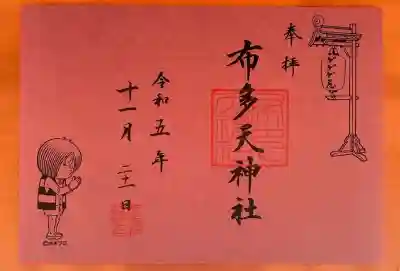 奉拝
布多天神社
令和五年
十一月二十一日
©水木プロ